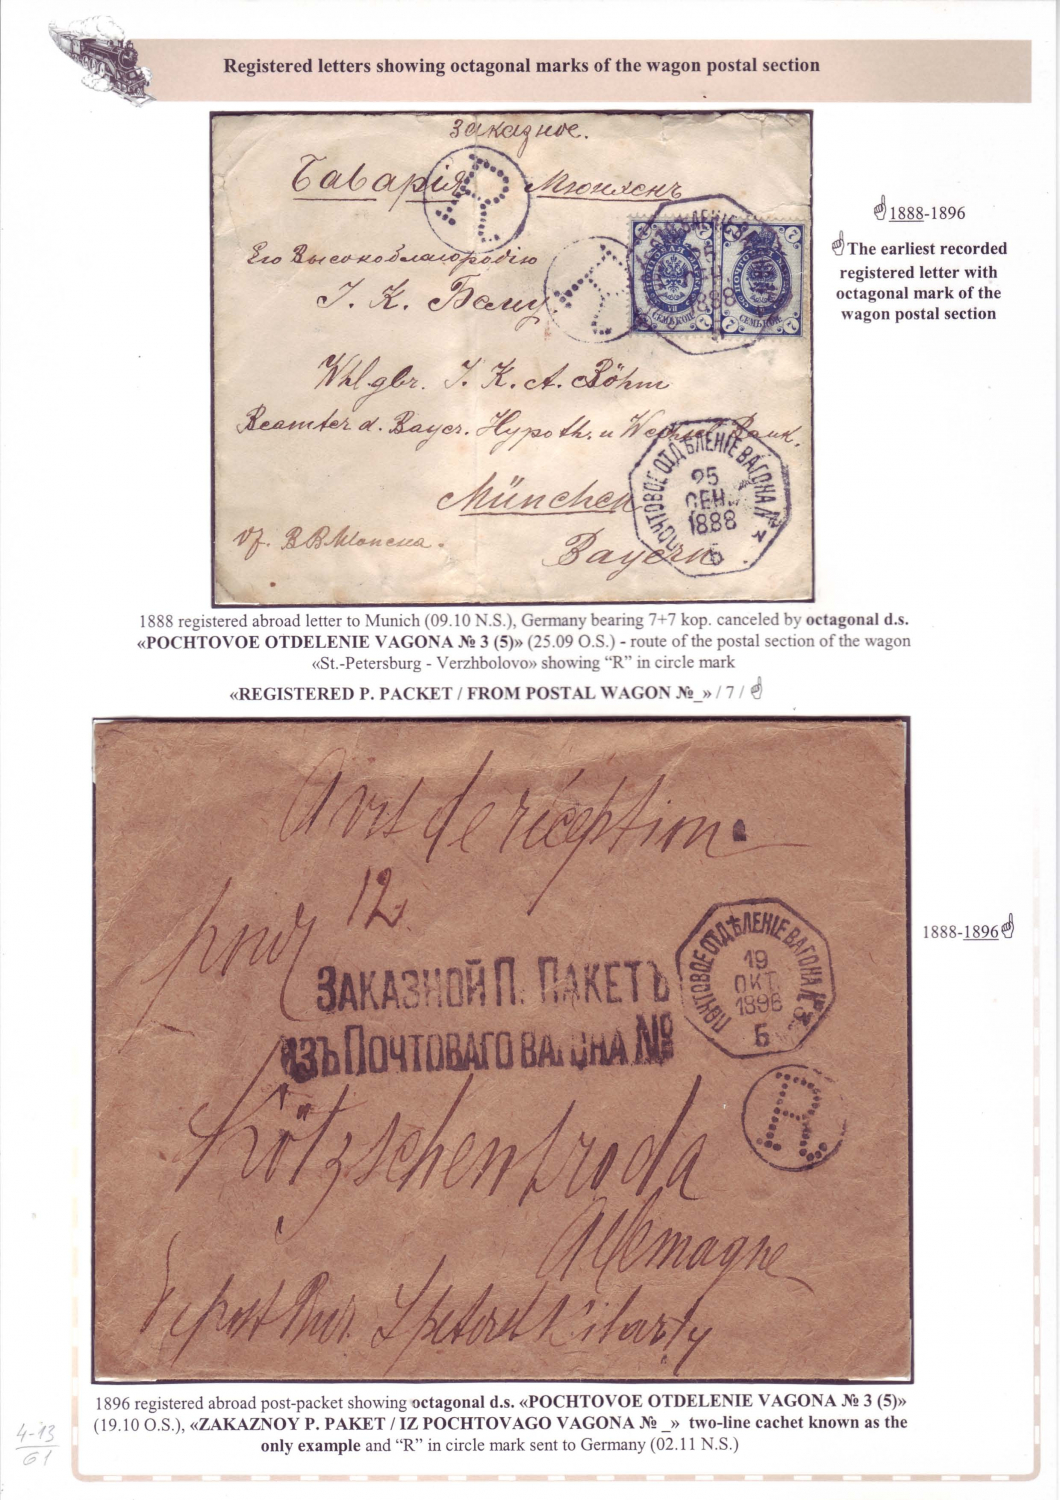 Registered letters showing octagonal marks of the wagon postal section
Заказное.
Баварія Мюнхенъ
R
Его Высокоблагородію
І. К. Бему
R
ПОЧТОВАЯ МАРКА
СЕМЬ КОП.
7 7
ПОЧТОВАЯ МАРКА
СЕМЬ КОП.
7 7
1888
Whlgbr. J. K. A. Böhm
Beamter d. Bayer. Hypoth. u Wechsel Bank.
München
Bayern
ПОЧТОВОЕ ОТДѢЛЕНІЕ ВАГОНА №
25
СЕН.
1888
1888-1896
The earliest recorded
registered letter with
octagonal mark of the
wagon postal section
1888 registered abroad letter to Munich (09.10 N.S.), Germany bearing 7+7 kop. canceled by octagonal d.s.
«POCHTOVOE OTDELENIE VAGONA № 3 (5)» (25.09 O.S.) - route of the postal section of the wagon
«St.-Petersburg - Verzhbolovo» showing “R” in circle mark
«REGISTERED P. PACKET / FROM POSTAL WAGON №_» / 7 /
Avis de réception
12
pour
ЗАКАЗНОЙ П. ПАКЕТЪ
ИЗЪ ПОЧТОВАГО ВАГОНА №
ПОЧТОВОЕ ОТДѢЛЕНІЕ ВАГОНА № 3
19
ОКТ.
1896
Б
R
Kötzschenbroda
Allemagne
1888-1896
1896 registered abroad post-packet showing octagonal d.s. «POCHTOVOE OTDELENIE VAGONA № 3 (5)»
(19.10 O.S.), «ZAKAZNOY P. PAKET / IZ POCHTOVAGO VAGONA № _» two-line cachet known as the
only example and “R” in circle mark sent to Germany (02.11 N.S.)
4-13
61